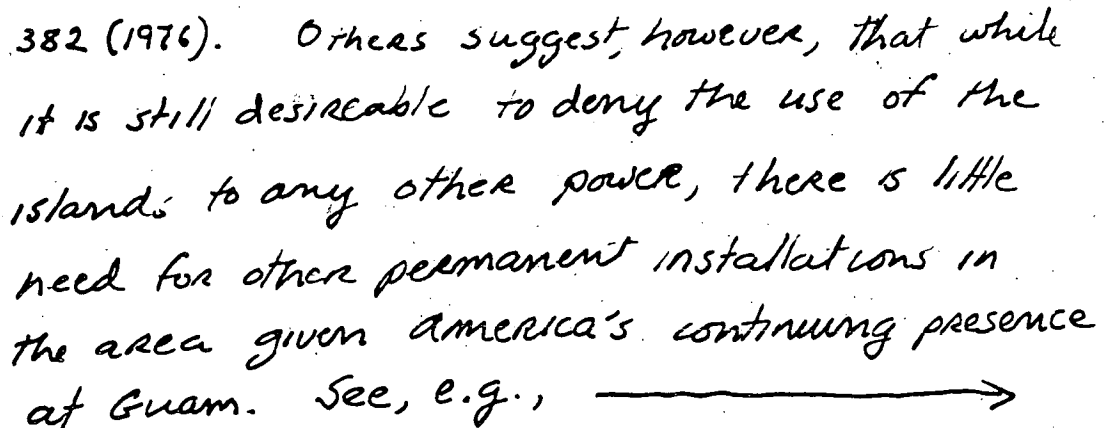 382 (1976). Others suggest, however, that while
it is still desireable to deny the use of the
islands to any other power, there is little
need for other permanent installations in
the area given America's continuing presence
at Guam. See, e.g., ⟶